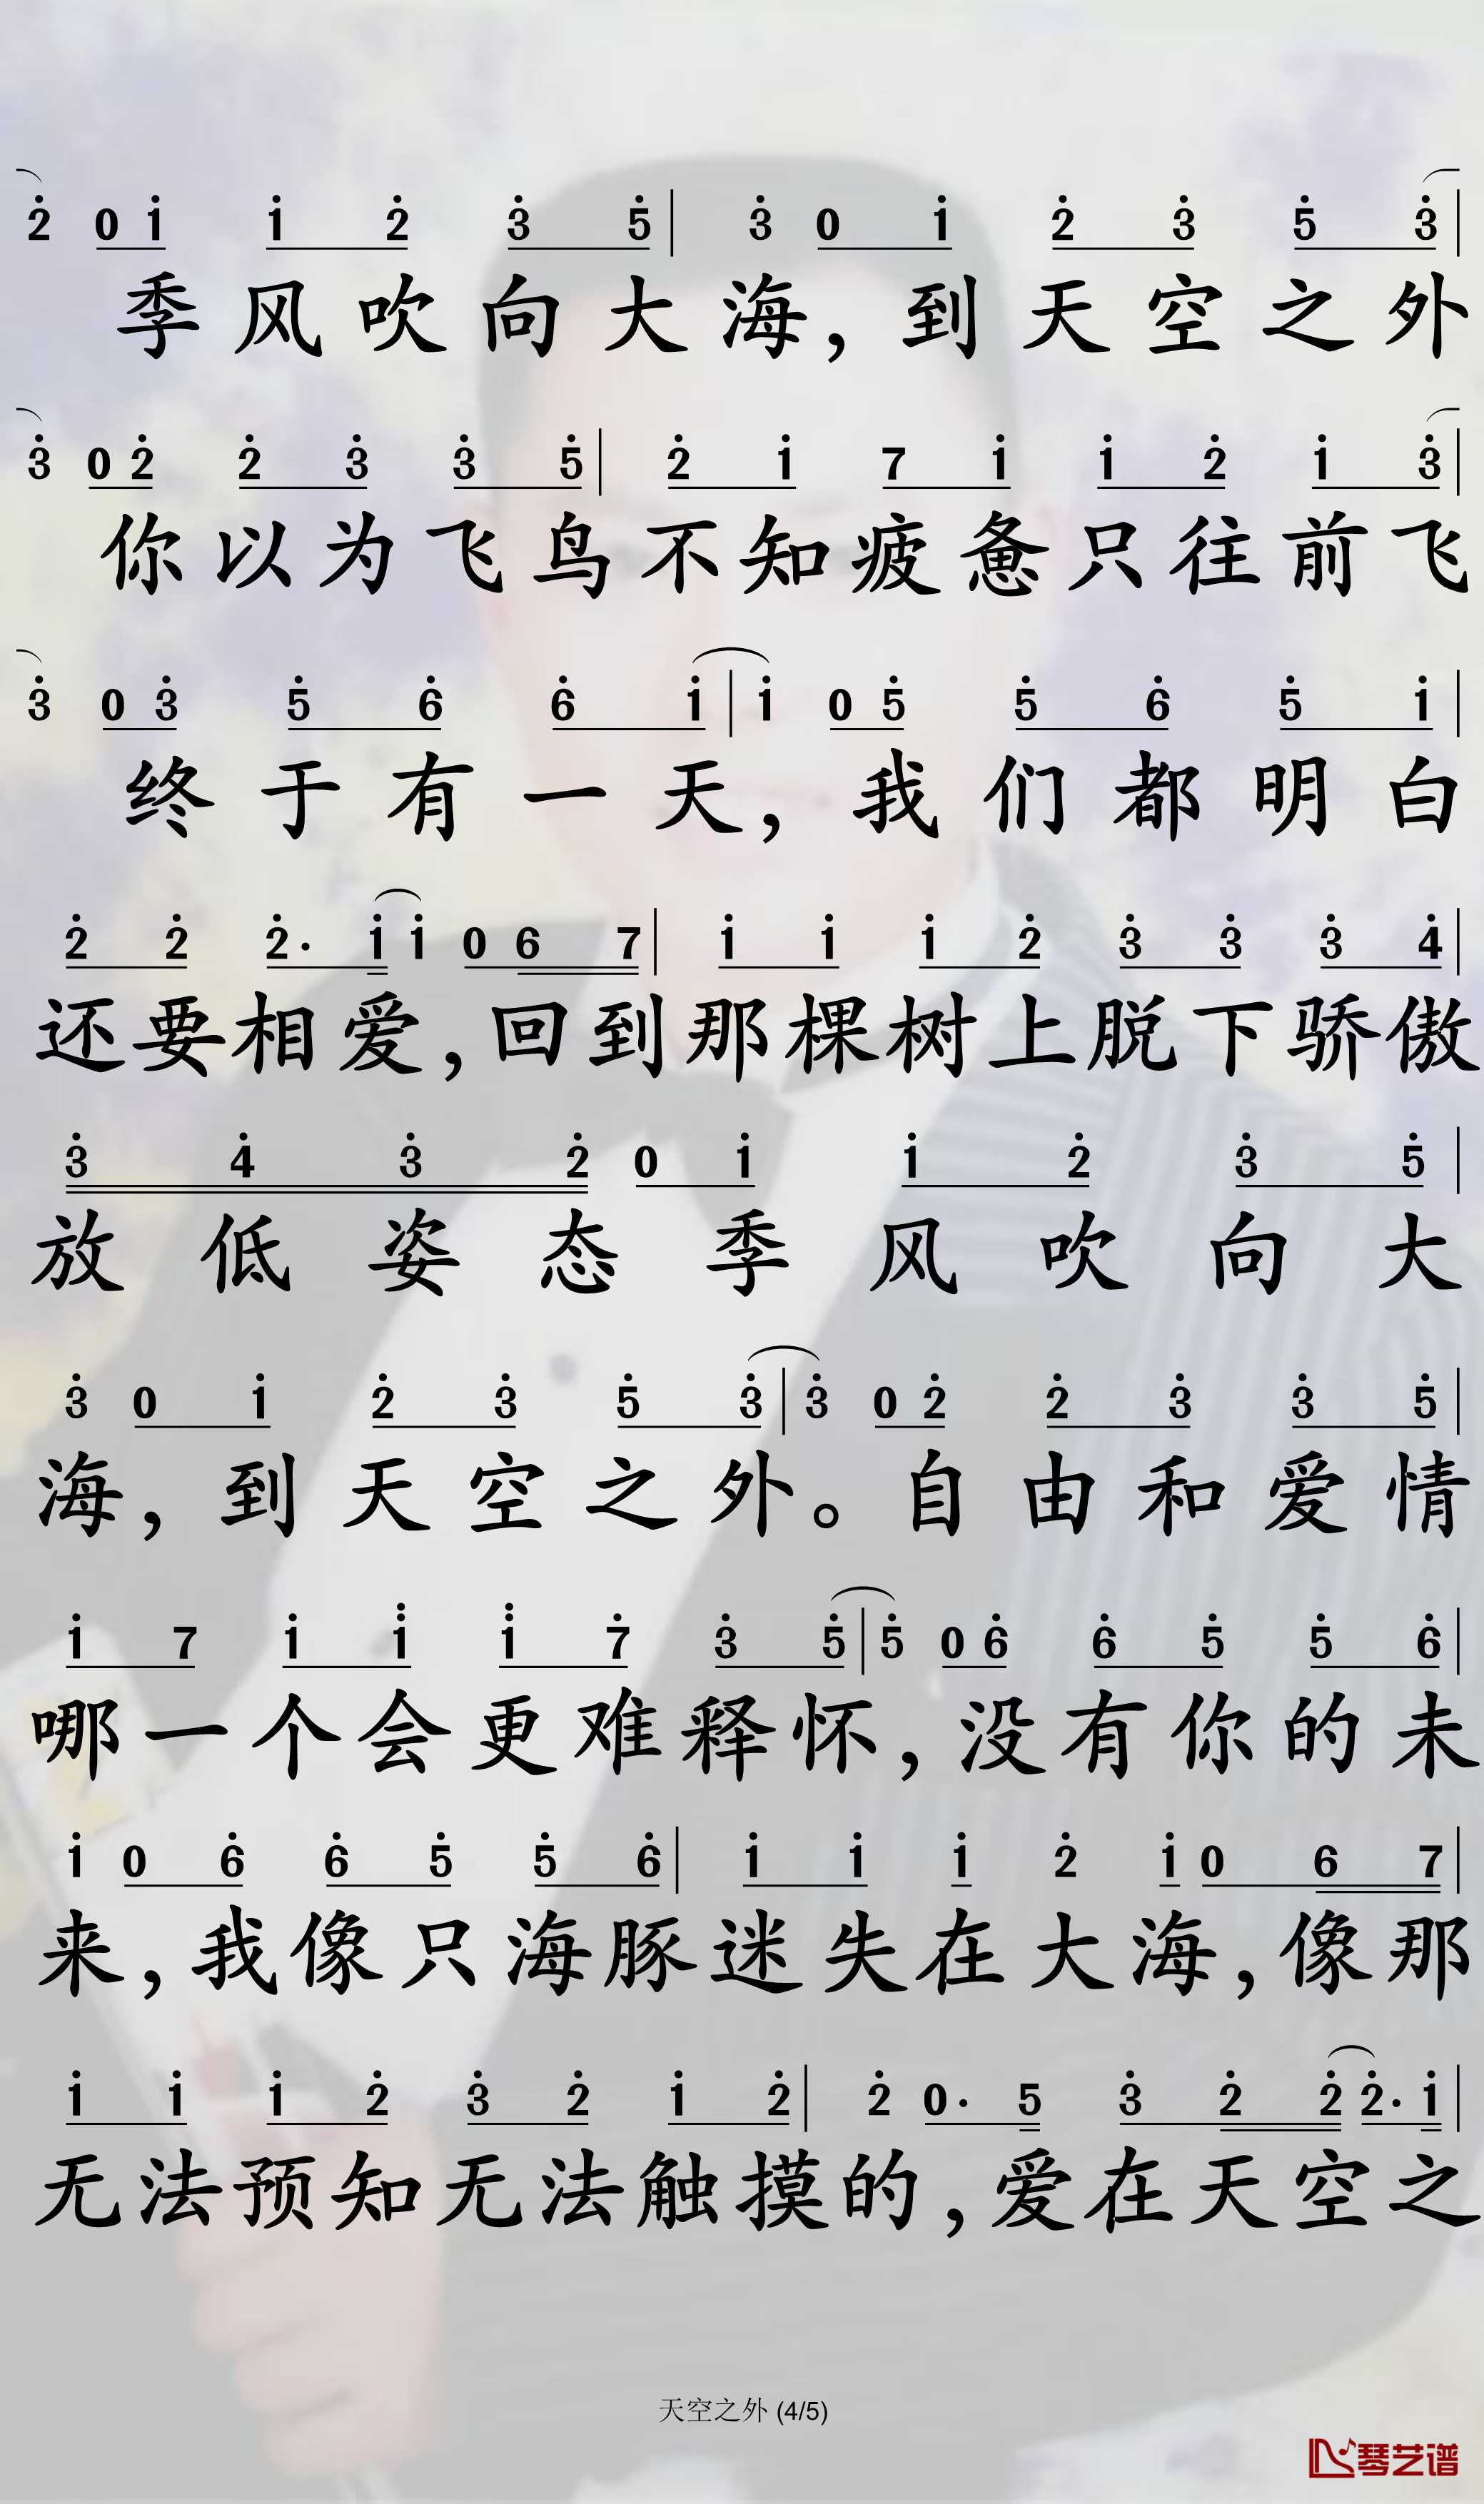 2̇ 0 1̇ 1̇ 2̇ 3̇ 5̇ | 3̇ 0 1̇ 2̇ 3̇ 5̇ 3̇ |
季风吹向大海，到天空之外
3̇ 0 2̇ 2̇ 3̇ 3̇ 5̇ | 2̇ 1̇ 7 1̇ 1̇ 2̇ 1̇ 3̇ |
你以为飞鸟不知疲惫只往前飞
3̇ 0 3̇ 5̇ 6̇ 6̇ 1̇ | 1̇ 0 5̇ 5̇ 6̇ 5̇ 1̇ |
终于有一天，我们都明白
2̇ 2̇ 2̇· 1̇ 1̇ 0 6 7 | 1̇ 1̇ 1̇ 2̇ 3̇ 3̇ 3̇ 4̇ |
还要相爱，回到那棵树上脱下骄傲
3̇ 4̇ 3̇ 2̇ 0 1̇ 1̇ 2̇ 3̇ 5̇ |
放低姿态季风吹向大
3̇ 0 1̇ 2̇ 3̇ 5̇ 3̇ | 3̇ 0 2̇ 2̇ 3̇ 3̇ 5̇ |
海，到天空之外。自由和爱情
1̇ 7 1̇ 1̈ 1̈ 7̇ 3̇ 5̇ | 5̇ 0 6̇ 6̇ 5̇ 5̇ 6̇ |
哪一个会更难释怀，没有你的未
1̇ 0 6̇ 6̇ 5̇ 5̇ 6̇ | 1̇ 1̇ 1̇ 2̇ 1̇ 0 6 7 |
来，我像只海豚迷失在大海，像那
1̇ 1̇ 1̇ 2̇ 3̇ 2̇ 1̇ 2̇ | 2̇ 0· 5 3̇ 2̇ 2̇ 2̇· 1̇ |
无法预知无法触摸的，爱在天空之
天空之外 (4/5)
琴艺谱